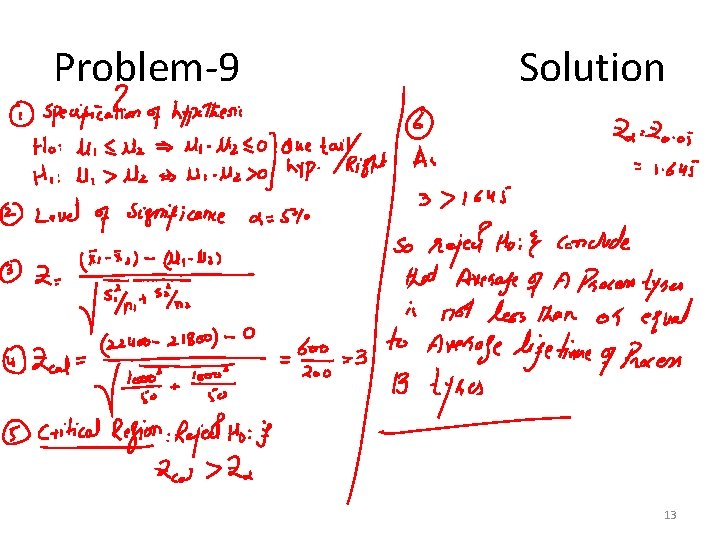 Problem-9
Solution
① Specification of hypothesis
H₀: μ₁ ≤ μ₂ ⇒ μ₁-μ₂ ≤ 0 } One tail
H₁: μ₁ > μ₂ ⇒ μ₁-μ₂ > 0 } hyp. / Right
② Level of Significance α = 5%
③ Z = ((x̄₁-x̄₂) - (μ₁-μ₂)) / √(s₁²/n₁ + s₂²/n₂)
④ Zcal = ((22400 - 21800) - 0) / √(1000²/50 + 1000²/50) = 600/200 = 3
⑤ Critical Region: Reject H₀: if
Zcal > Zα
⑥
As
Zα = Z0.05
= 1.645
3 > 1.645
So reject H₀: & conclude
that Average of A Process tyres
is not less than or equal
to Average life time of Process
B tyres
13